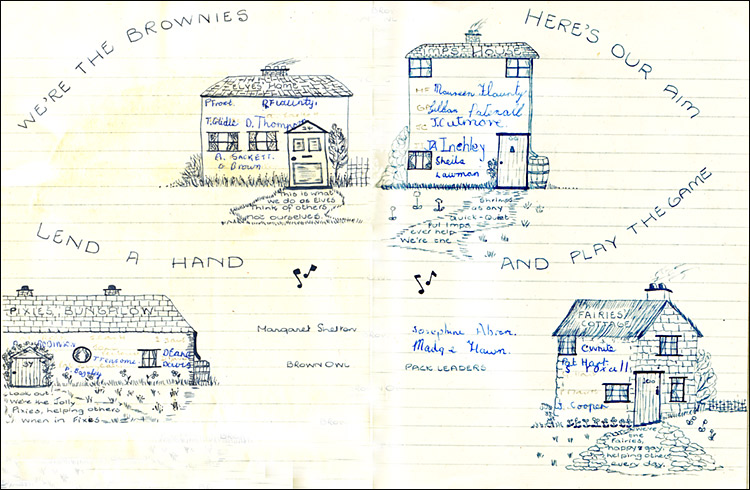 WE'RE THE BROWNIES
HERE'S OUR AIM
ELVES HOME
P Frost. R Flaunty.
D. Thompson
A. SACKETT.
D Brown.
This is what
we do as Elves
Think of others
not ourselves.
IMPS HOUSE
Maureen Flaunty.
Gillian
J. Cutmore
Inchley
Sheila
Lawman
as any
Quick-Quiet
Put Imps
ever help
We're one
LEND A HAND
AND PLAY THE GAME
PIXIES BUNGALOW
Diane
Davis
37
Look out
We're the Jolly
Pixies, helping others
when in Fixes
Margaret Shelton
BROWN OWL
Josephine
Madge Hawn.
PACK LEADERS
FAIRIES
COTTAGE
C White
Pat Hart
J. Cooper
We're
the
Fairies,
happy & gay.
helping other
every day.